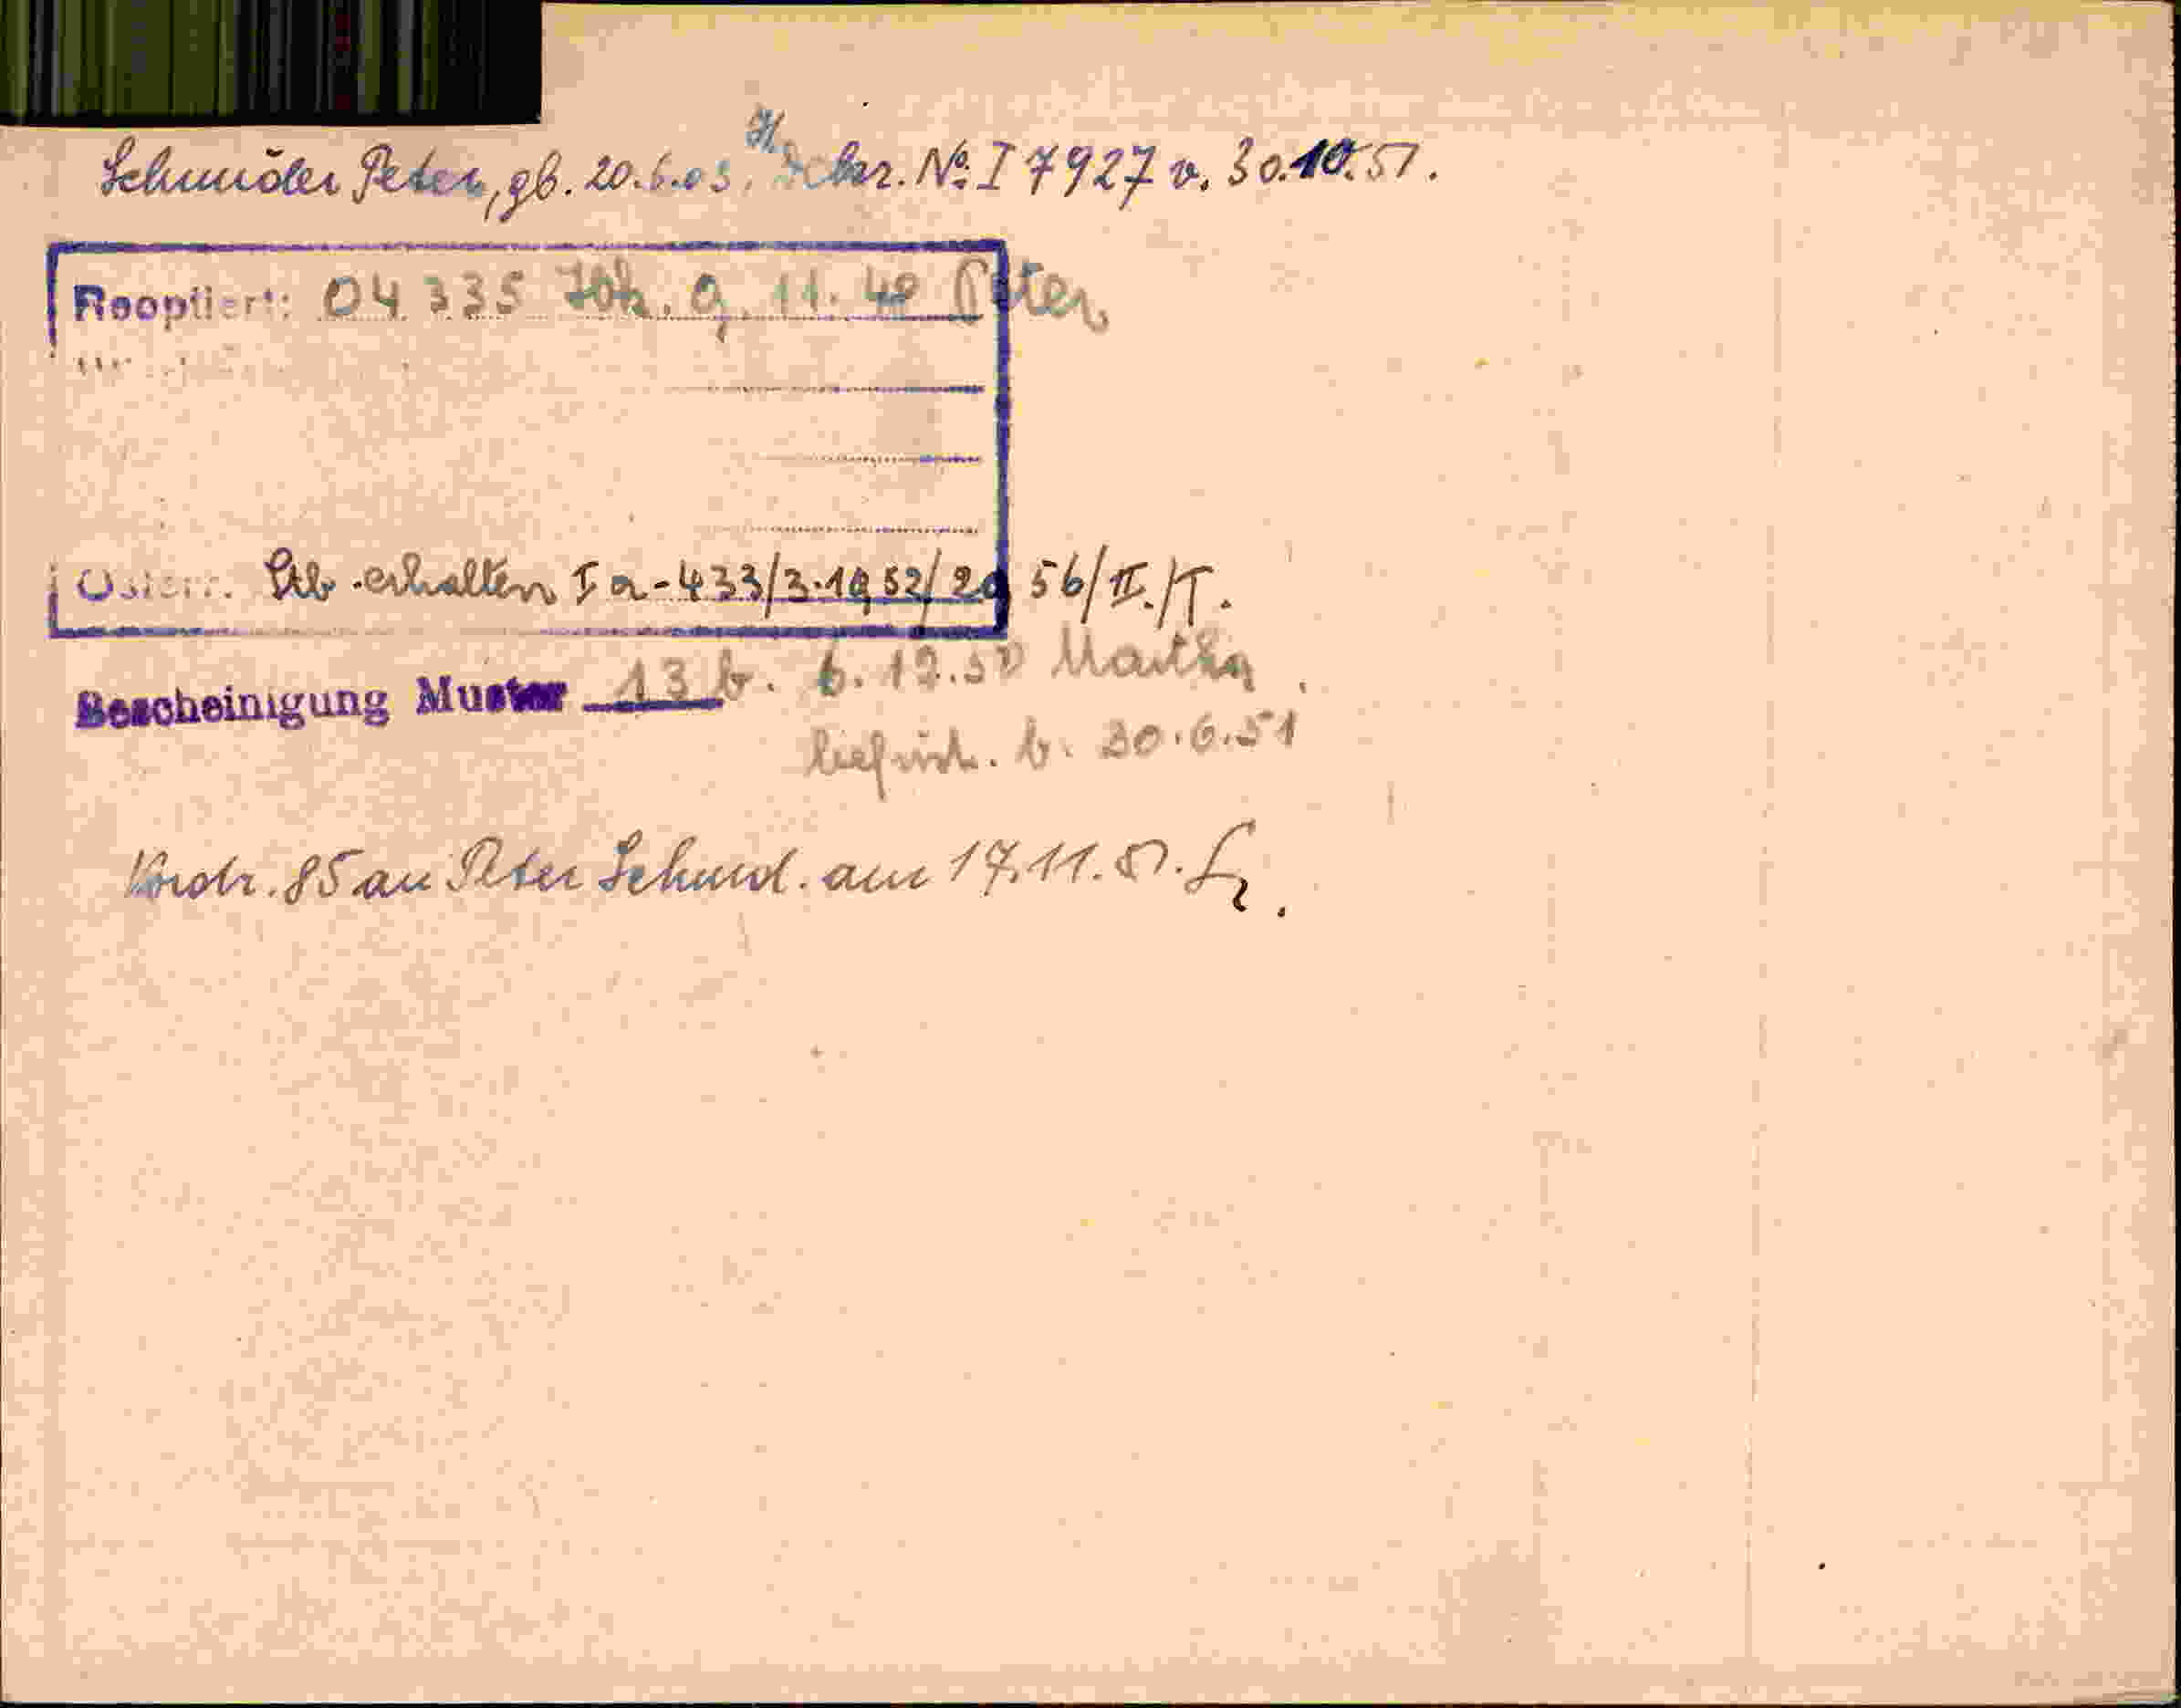 Peter, gb. 20.6.03, No: I 7927 v. 30.10.51.
Reoptiert: 04 335 9. 11. 49 Peter
Österr. Stb. erhalten I a - 433/3-1952/ 56/II./T.
Bescheinigung Muster 13 b. 6. 12.50 Martha
b. 30.6.51
Vordr. 85 an Peter Schmid. am 17.11.51.